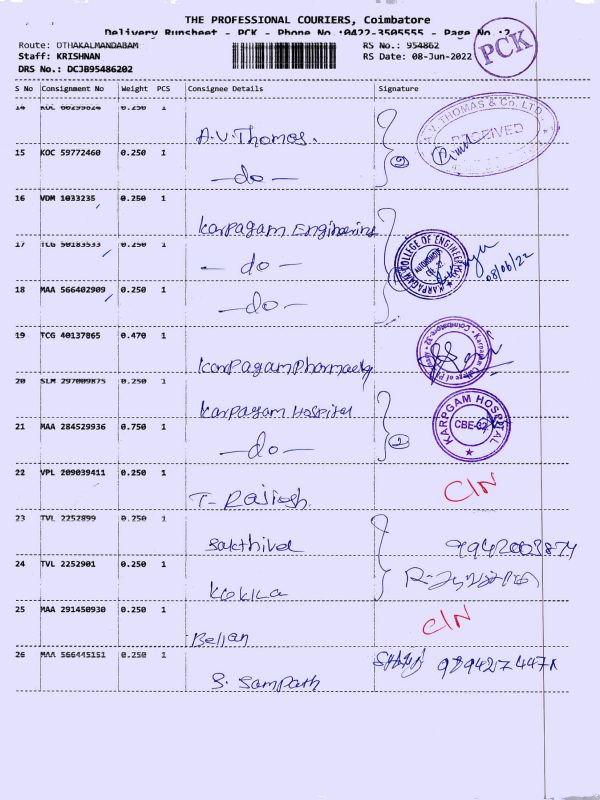 THE PROFESSIONAL COURIERS, Coimbatore
Delivery Runsheet - PCK - Phone No.:0422-3505555 - Page No.:2
Route: OTHAKALMANDABAM
Staff: KRISHNAN
DRS No.: DCJB95486202
RS No.: 954862
RS Date: 08-Jun-2022
PCK
S No Consignment No Weight PCS Consignee Details Signature
14 KOC 60299824 0.250 1
A.V. Thomas.
A.V. THOMAS & Co. LTD.
RECEIVED
15 KOC 59772460 0.250 1
—do—
2
16 VDM 1033235 0.250 1
Karpagam Engineering
17 TCG 50183533 0.250 1
—do—
KARPAGAM COLLEGE OF ENGINEERING
AUTONOMOUS
08/06/22
18 MAA 566402909 0.250 1
—do—
19 TCG 40137865 0.470 1
Karpagam Pharmacy
Karpagam College of Pharmacy Coimbatore-32
20 SLM 297009875 0.250 1
Karpagam Hospital
KARPGAM HOSPITAL
CBE-32
21 MAA 284529936 0.750 1
—do—
2
22 VPL 209039411 0.250 1
T- Rajiesh
C/N
23 TVL 2252899 0.250 1
Sakthivel
24 TVL 2252901 0.250 1
Kokila
25 MAA 291450930 0.250 1
Bellan
C/N
26 MAA 566445151 0.250 1
S. Sampath